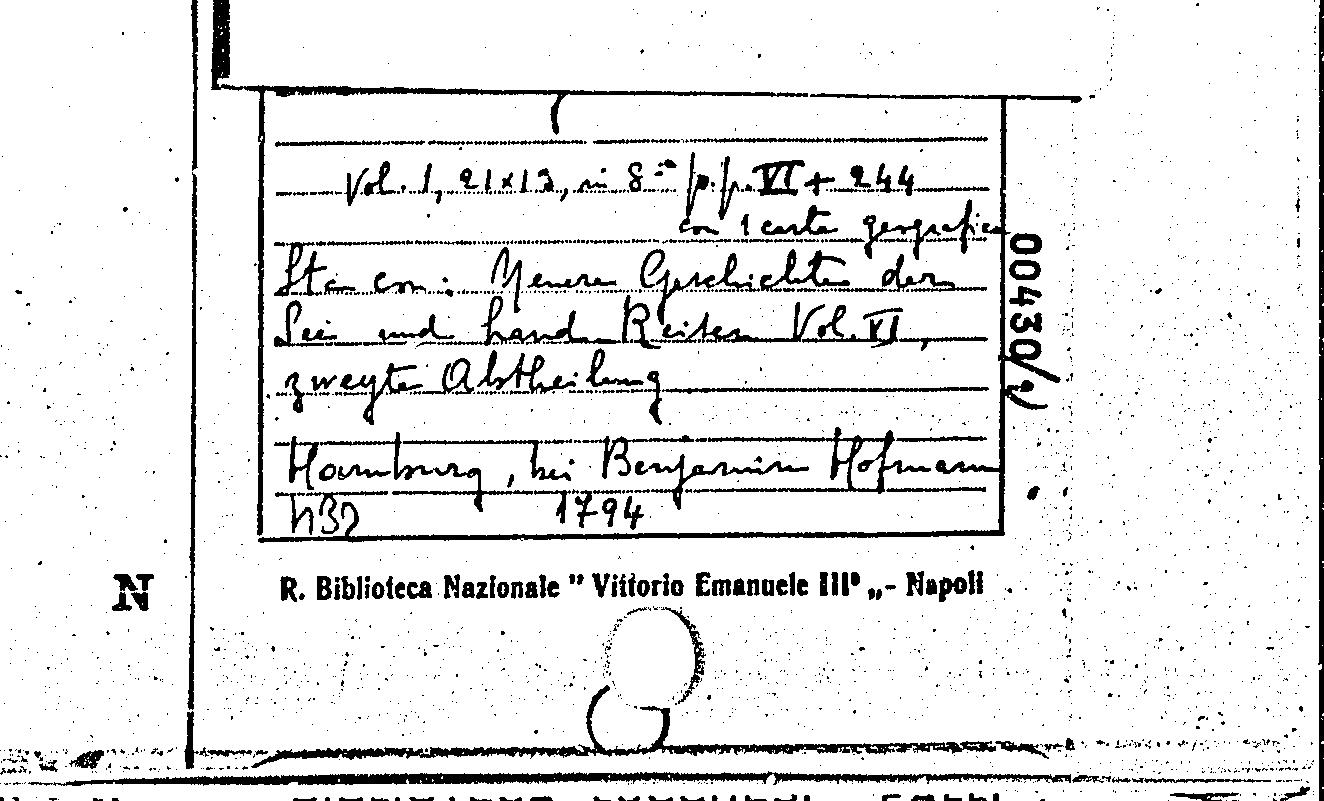 Vol. 1, 21x13, in 8° p.p. VI + 244
con 1 carta geografica
Sta con: Neuere Geschichte der
See und Land Reisen Vol. VI,
zweyte Abtheilung
Hamburg, bei Benjamin Hofmann
1794
00430/
N
R. Biblioteca Nazionale " Vittorio Emanuele III° „- Napoli